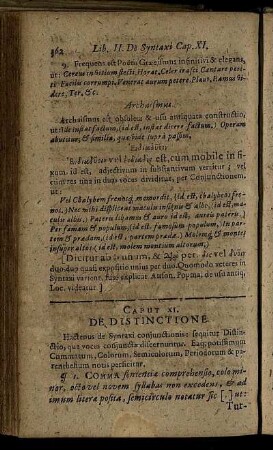 362 Lib. II. De Syntaxi Cap. XI.
9. Frequens est Poëtis Græcismus infinitivi & elegans,
ut: Cereus in vitium flecti, Horat. Celer irasci Cantare peri-
ti Facilis corrumpi. Venerat aurum petere. Plaut. Pamus vi-
dere, Ter. &c.
Archaismus.
Archaismus est obsoleta & usu antiquata constructio,
ut: ille injussu factum, (id est, injussu facere factum.) Operam
abutitur, & similia, quæ vide suprà passim.
est, cum mobile in fi-
xum, id est, adjectivum in substantivum vertitur; vel
cum res una in duas voces dividitur, per Conjunctionem,
ut:
Vel Chalybem frenosq; momordit, (id est, chalybeos fre-
nos.) Nec mihi displiceat maculis insignis & albo, (id est, ma-
culis albis.) Pateris libamus & auro id est, aureis pateris.)
Per famam & populum, (id est, famosum populum,) In par-
tem & prædam, (id est, partem prædæ.) Molemq; & montes
insuper altos, id est, molem montium altorum.)
[Dicitur ab unum, & per, die vel
duo quasi expositio unius per duo. Quomodo veteres in
Syntaxi varient, fusè explicat Auson. Popma, de usu antiq.
Loc. videatur.]
CAPUT XI.
DE DISTINCTIONE.
Hactenus de Syntaxi conjunctionis: sequitur Distin-
ctio, quâ voces conjunctæ discernuntur. Eaq; potissimùm
Commatum, Colorum, Semicolorum, Periodorum & pa-
renthesium notis perficitur.
1. COMMA sententiæ comprehensio, colo mi-
nor, octo vel novem syllabas non excedens, & ad
imum litera posita, semicirculo notatur sic [,] ut:
Tur-